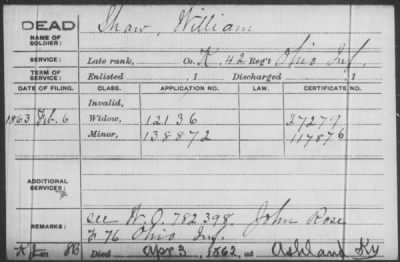 DEAD
NAME OF SOLDIER: Shaw, William
SERVICE: Late rank, Co. K. 42 Reg't Ohio Inf.
TERM OF SERVICE: Enlisted , 1 Discharged , 1
DATE OF FILING. CLASS. APPLICATION NO. LAW. CERTIFICATE NO.
Invalid,
1863 Feb. 6 Widow, 12136 27277
Minor, 138872 117876
ADDITIONAL SERVICES:
REMARKS: see W.O. 782398. John Rose
F 76 Ohio Inf.
Died Apr 3, 1862, at Ashland Ky